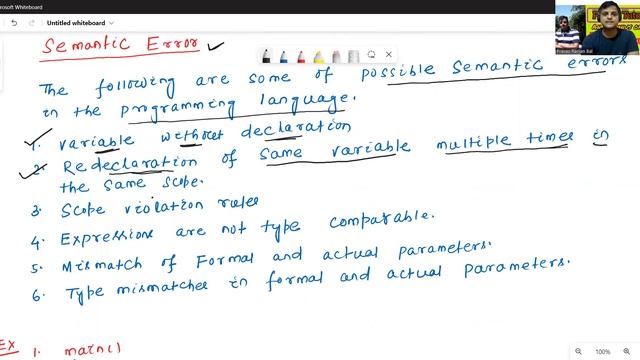 Microsoft Whiteboard
Untitled whiteboard
Semantic Error
The following are some of possible semantic errors
in the programming language.
1. variable without declaration
2. Redeclaration of same variable multiple times in
the same scope.
3. Scope violation rules
4. Expressions are not type comparable.
5. Mismatch of Formal and actual parameters.
6. Type mismatches in formal and actual parameters.
EX 1. main()
100%